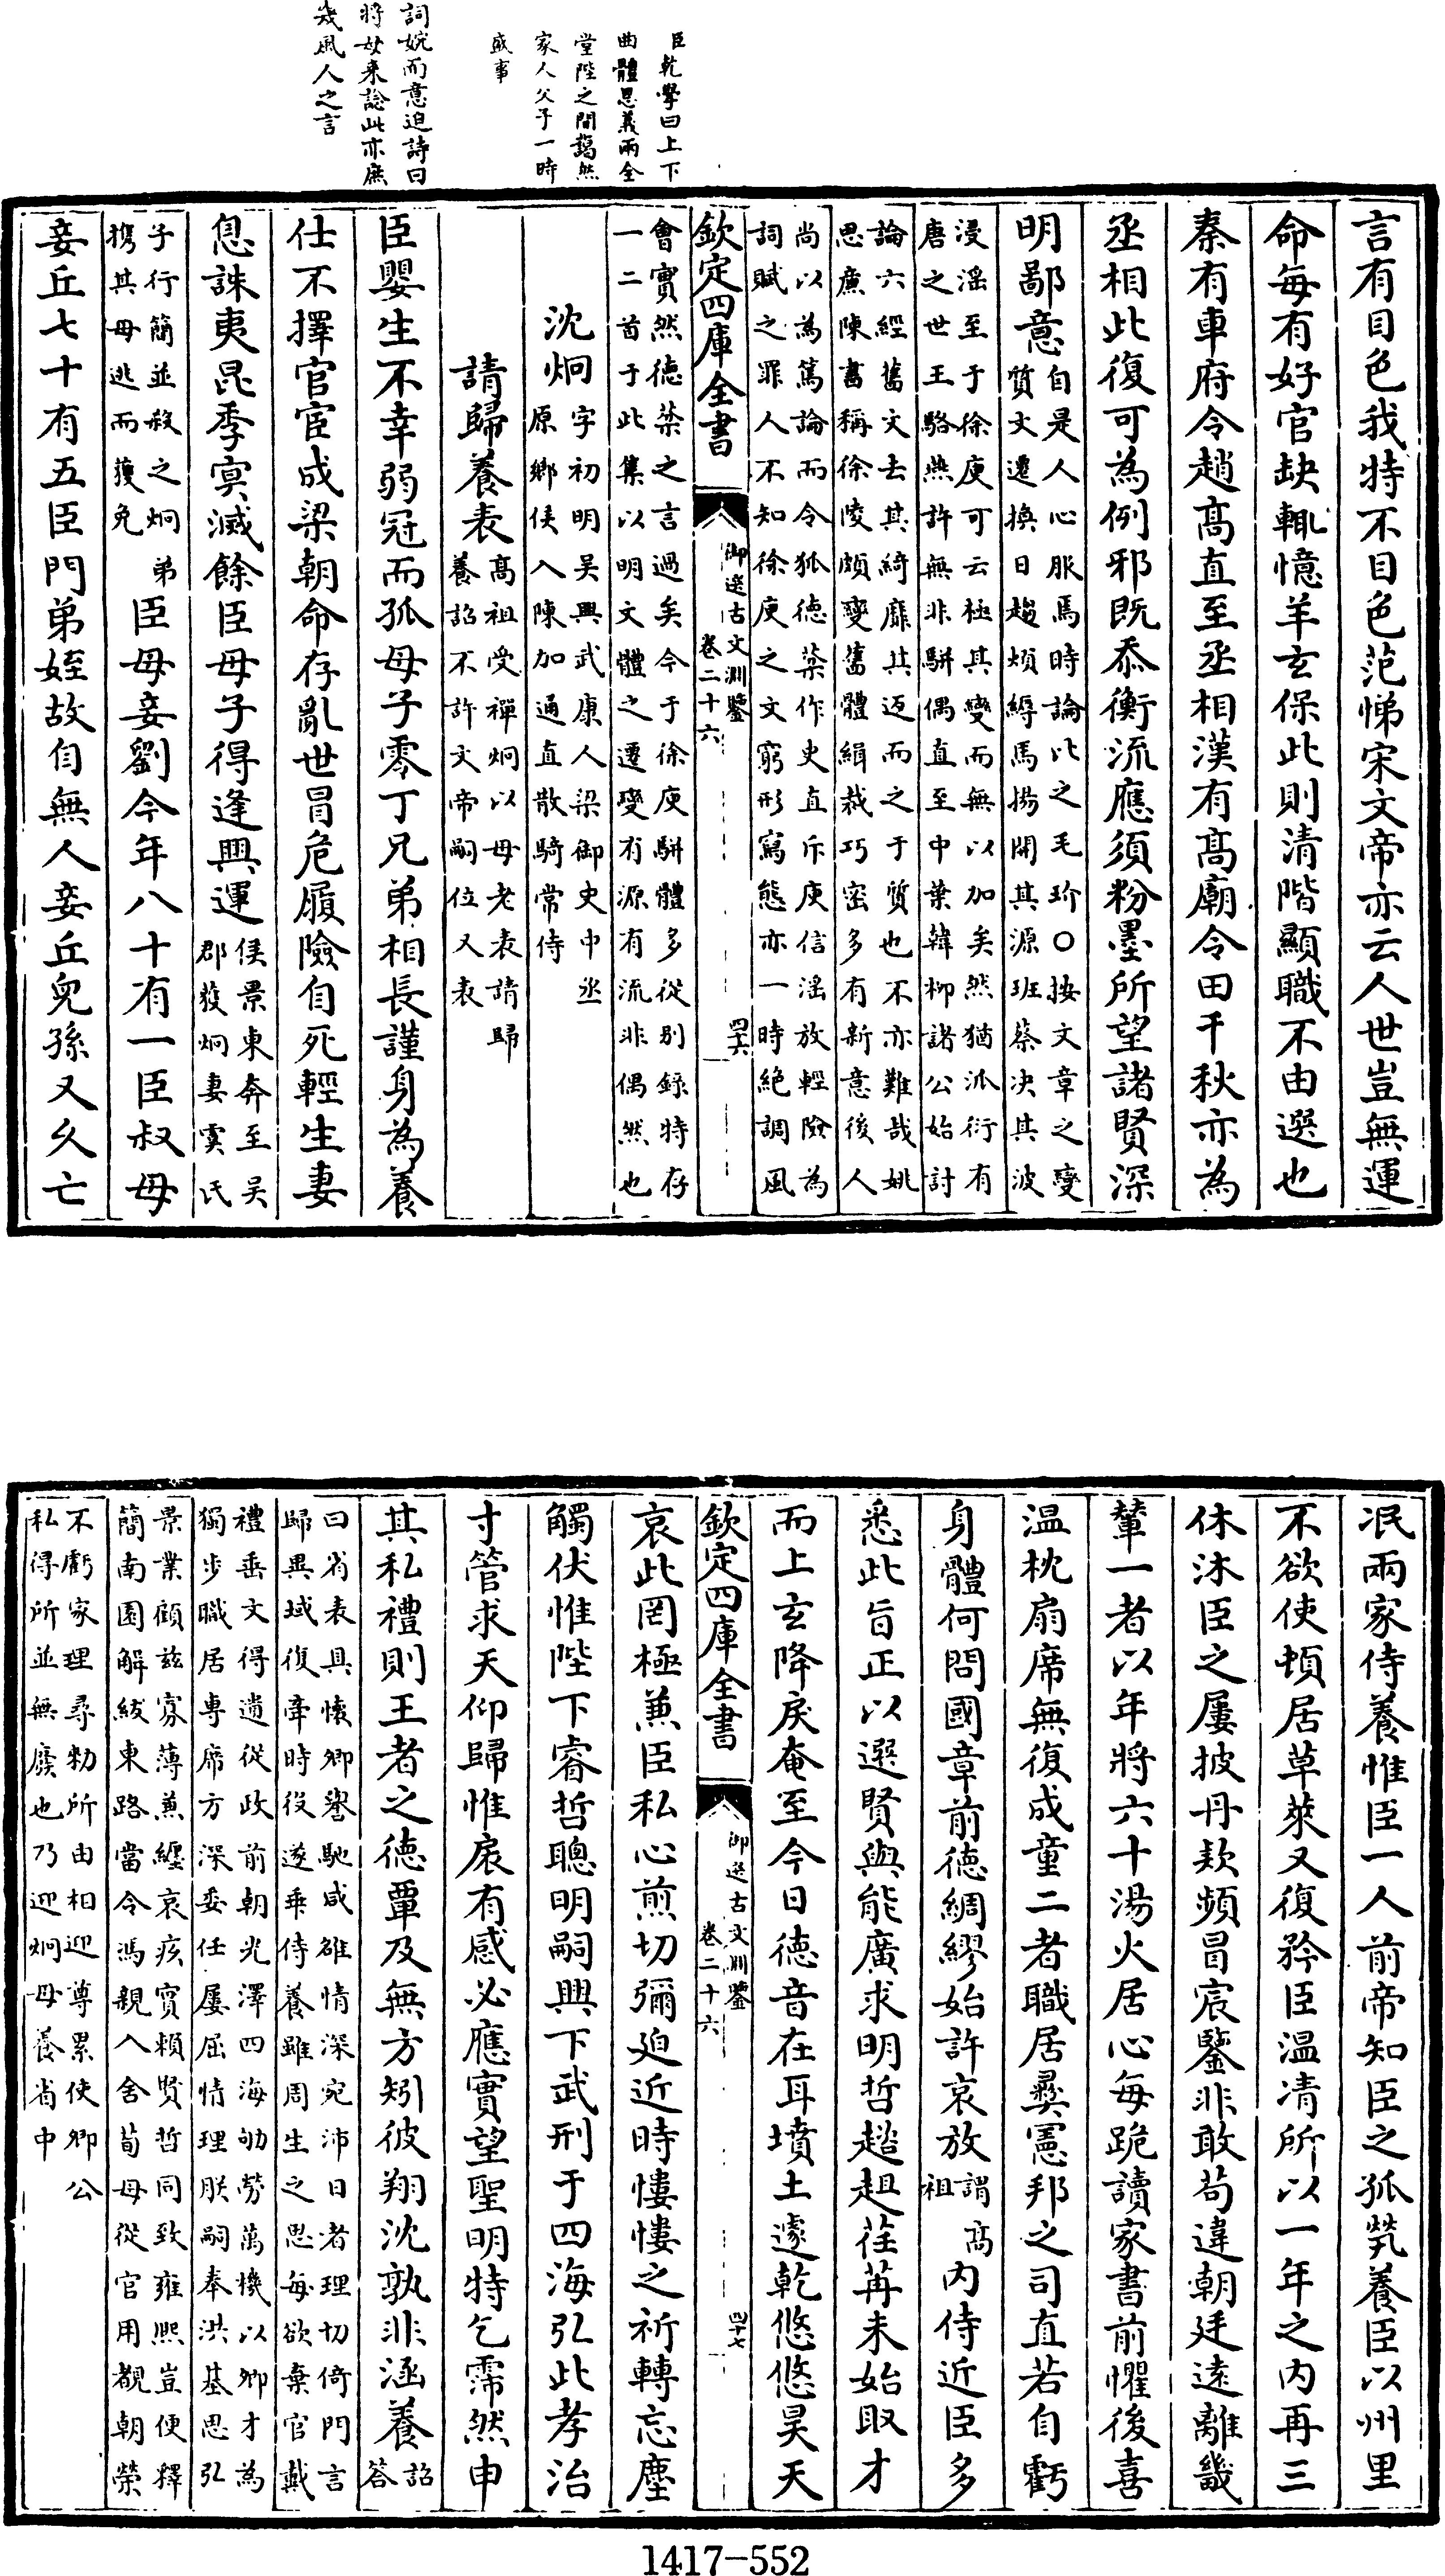 臣乾學曰上下
曲體恩義兩全
堂陛之間藹然
家人父子一時
盛事
詞婉而意迫詩曰
將母来諗此亦庶
幾風人之言
言有目色我特不目色范悌宋文帝亦云人世豈無運
命每有好官缺輒憶羊玄保此則清階顯職不由選也
秦有車府令趙髙直至丞相漢有髙廟令田千秋亦為
丞相此復可為例邪既忝衡流應須粉墨所望諸賢深
明鄙意
自是人心服焉時論比之毛玠○按文章之變
質文遷換日趨煩縟馬揚開其源班蔡决其波
浸滛至于徐庾可云極其變而無以加矣然猶沠衍有
唐之世王駱燕許無非駢偶直至中葉韓栁諸公始討
論六經舊文去其綺靡其返而之于質也不亦難哉姚
思廉陳書稱徐陵頗變舊體緝裁巧宻多有新意後人
尚以為篤論而令狐德棻作史直斥庾信滛放輕險為
詞賦之罪人不知徐庾之文窮形寫態亦一時絶調風
欽定四庫全書
御選古文淵鑒
卷二十六
四十六
會實然德棻之言過矣今于徐庾駢體多從别録特存
一二首于此集以明文體之遷變有源有流非偶然也
沈炯
字初明吳興武康人梁御史中丞
原鄉侯入陳加通直散騎常侍
請歸養表
髙祖受禪炯以母老表請歸
養詔不許文帝嗣位又表
臣嬰生不幸弱冠而孤母子零丁兄弟相長謹身為養
仕不擇官宦成梁朝命存亂世冒危履險自死輕生妻
息誅夷昆季寘滅餘臣母子得逢興運
侯景東奔至吳
郡獲炯妻虞氏
子行簡並殺之炯弟
携其母逃而獲免
臣母妾劉今年八十有一臣叔母
妾丘七十有五臣門弟姪故自無人妾丘兒孫又久亡
泯兩家侍養惟臣一人前帝知臣之孤煢養臣以州里
不欲使頓居草萊又復矜臣温凊所以一年之内再三
休沐臣之屢披丹欵頻冒宸鑒非敢茍違朝廷逺離畿
輦一者以年將六十湯火居心每跪讀家書前懼後喜
温枕扇席無復成童二者職居彛憲邦之司直若自虧
身體何問國章前徳綢繆始許哀放
謂髙
祖
内侍近臣多
悉此旨正以選賢與能廣求明哲趦趄荏苒未始取才
而上玄降戾奄至今日徳音在耳墳土遽乾悠悠昊天
欽定四庫全書
御選古文淵鑒
卷二十六
四十七
哀此罔極兼臣私心煎切彌迫近時慺慺之祈轉忘塵
觸伏惟陛下睿哲聰明嗣興下武刑于四海弘此孝治
寸管求天仰歸惟扆有感必應實望聖明特乞霈然申
其私禮則王者之徳覃及無方矧彼翔沈孰非涵養
詔
答
曰省表具懷卿譽馳咸雒情深宛沛日者理切倚門言
歸異域復牽時役遂乖侍養雖周生之思每欲棄官戴
禮垂文得遺從政前朝光澤四海劬勞萬機以卿才為
獨步職居專席方深委任屢屈情理朕嗣奉洪基思弘
景業顧兹寡薄兼纒哀疚實賴賢哲同致雍熙豈便釋
簡南園解紱東路當令馮親入舍荀母從官用覩朝榮
不虧家理尋勅所由相迎尊累使卿公
私得所並無廢也乃迎炯母養省中
1417-552